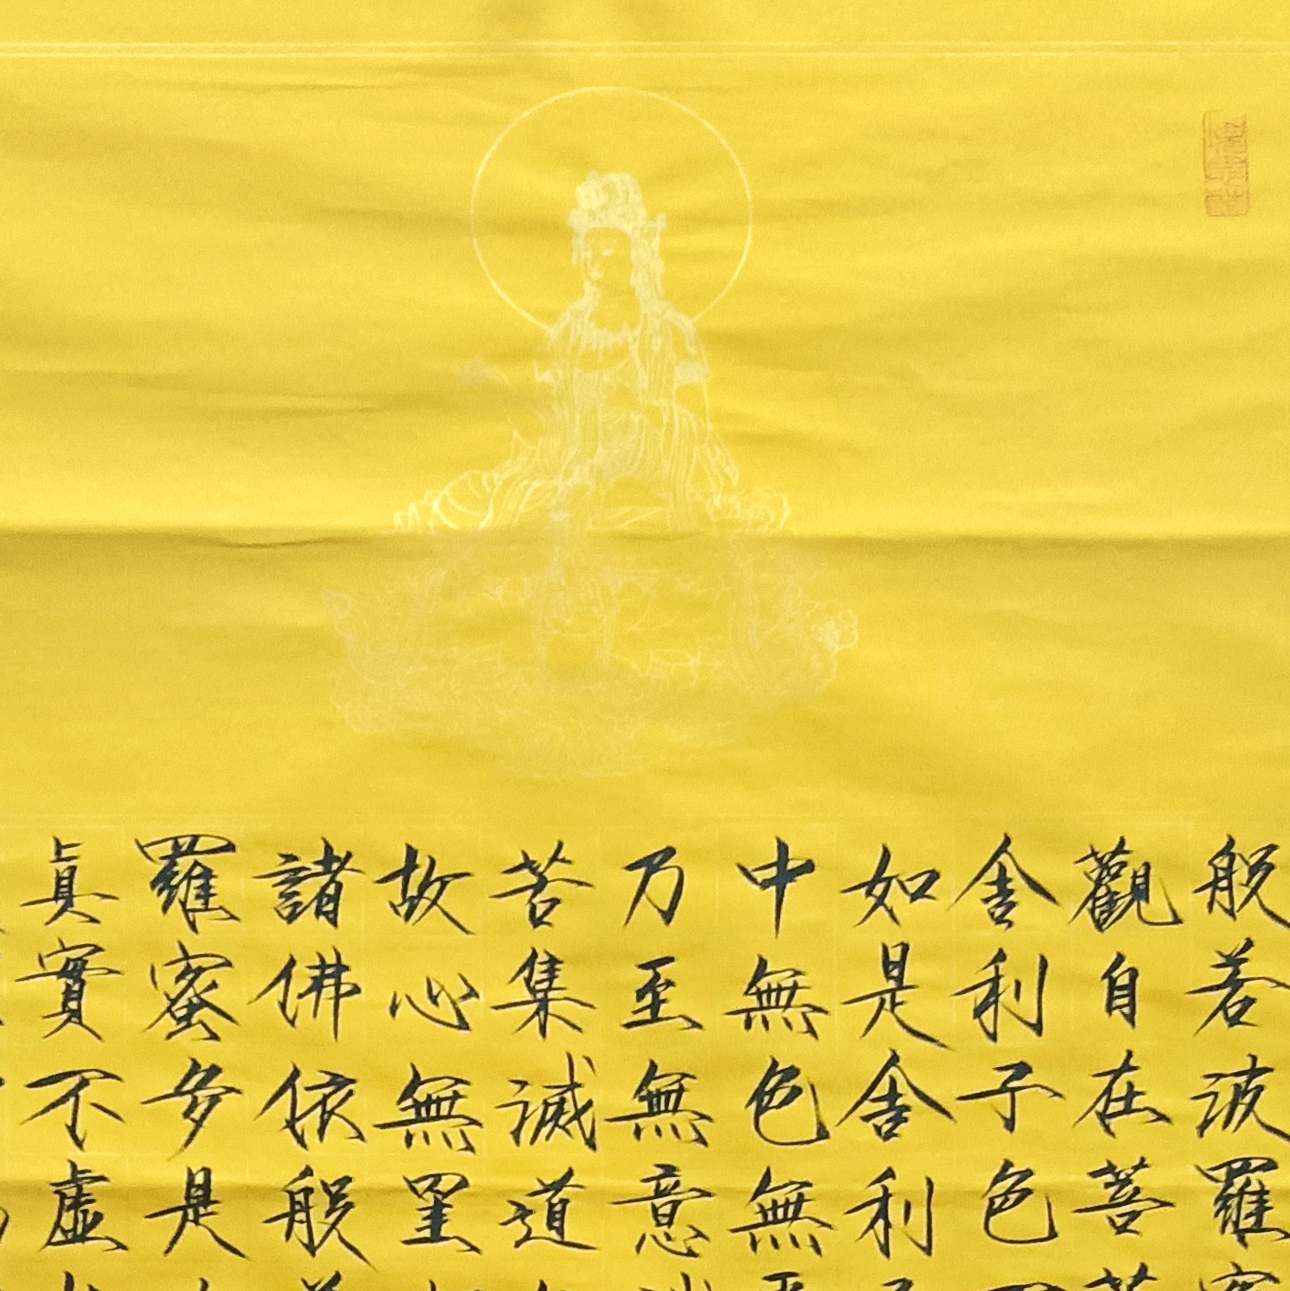 般若波羅
觀自在菩
舍利子色
如是舍利
中無色無
乃至無意
苦集滅道
故心無罣
諸佛依般
羅蜜多是
真實不虛